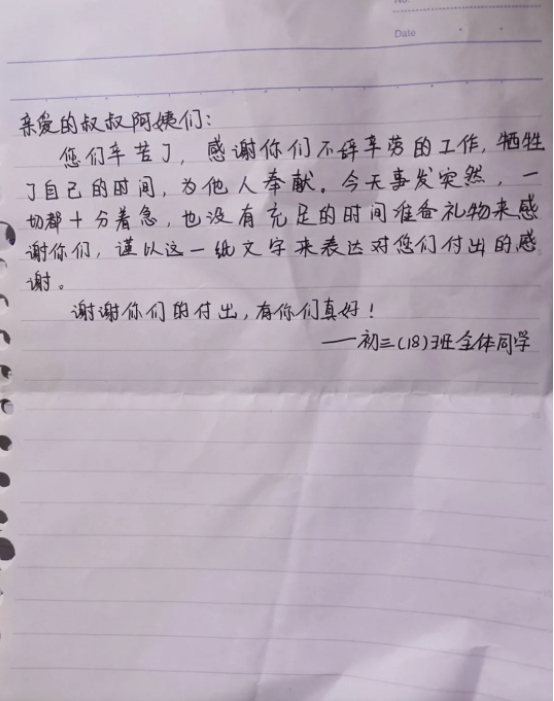 No.
Date
亲爱的叔叔阿姨们：
您们辛苦了，感谢你们不辞辛劳的工作，牺牲
了自己的时间，为他人奉献。今天事发突然，一
切都十分着急，也没有充足的时间准备礼物来感
谢你们，谨以这一纸文字来表达对您们付出的感
谢。
谢谢你们的付出，有你们真好！
——初三（18）班全体同学